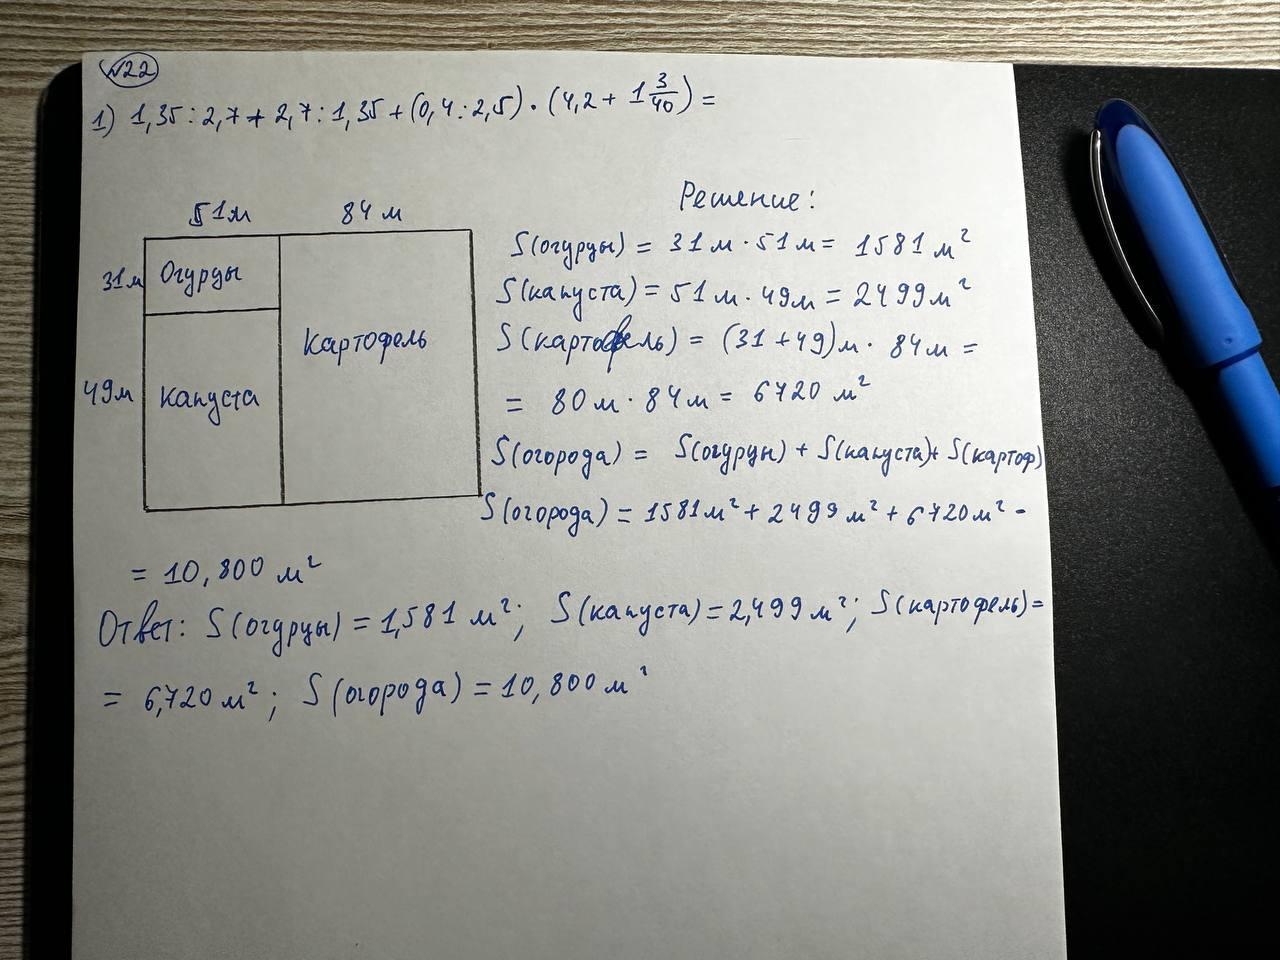 №22
1) 1,35 : 2,7 + 2,7 : 1,35 + (0,4 : 2,5) · (4,2 + 1 3/40) =
Решение:
51м 84 м
31м Огурцы
49м Капуста
Картофель
S(огурцы) = 31 м · 51 м = 1581 м²
S(капуста) = 51 м · 49м = 2499 м²
S(картофель) = (31 + 49)м · 84м =
= 80 м · 84м = 6720 м²
S(огорода) = S(огурцы) + S(капуста)+ S(картоф)
S(огорода) = 1581м² + 2499 м² + 6720м² -
= 10,800 м²
Ответ: S(огурцы) = 1,581 м²; S(капуста) = 2,499 м²; S(картофель) =
= 6,720 м²; S(огорода) = 10,800 м²